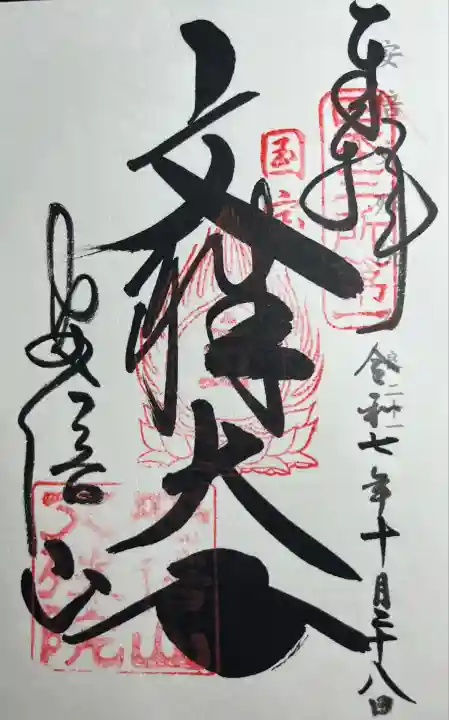 奉拝
令和七年十月二十八日
国宝
文殊大
安倍山
安倍山
文殊院